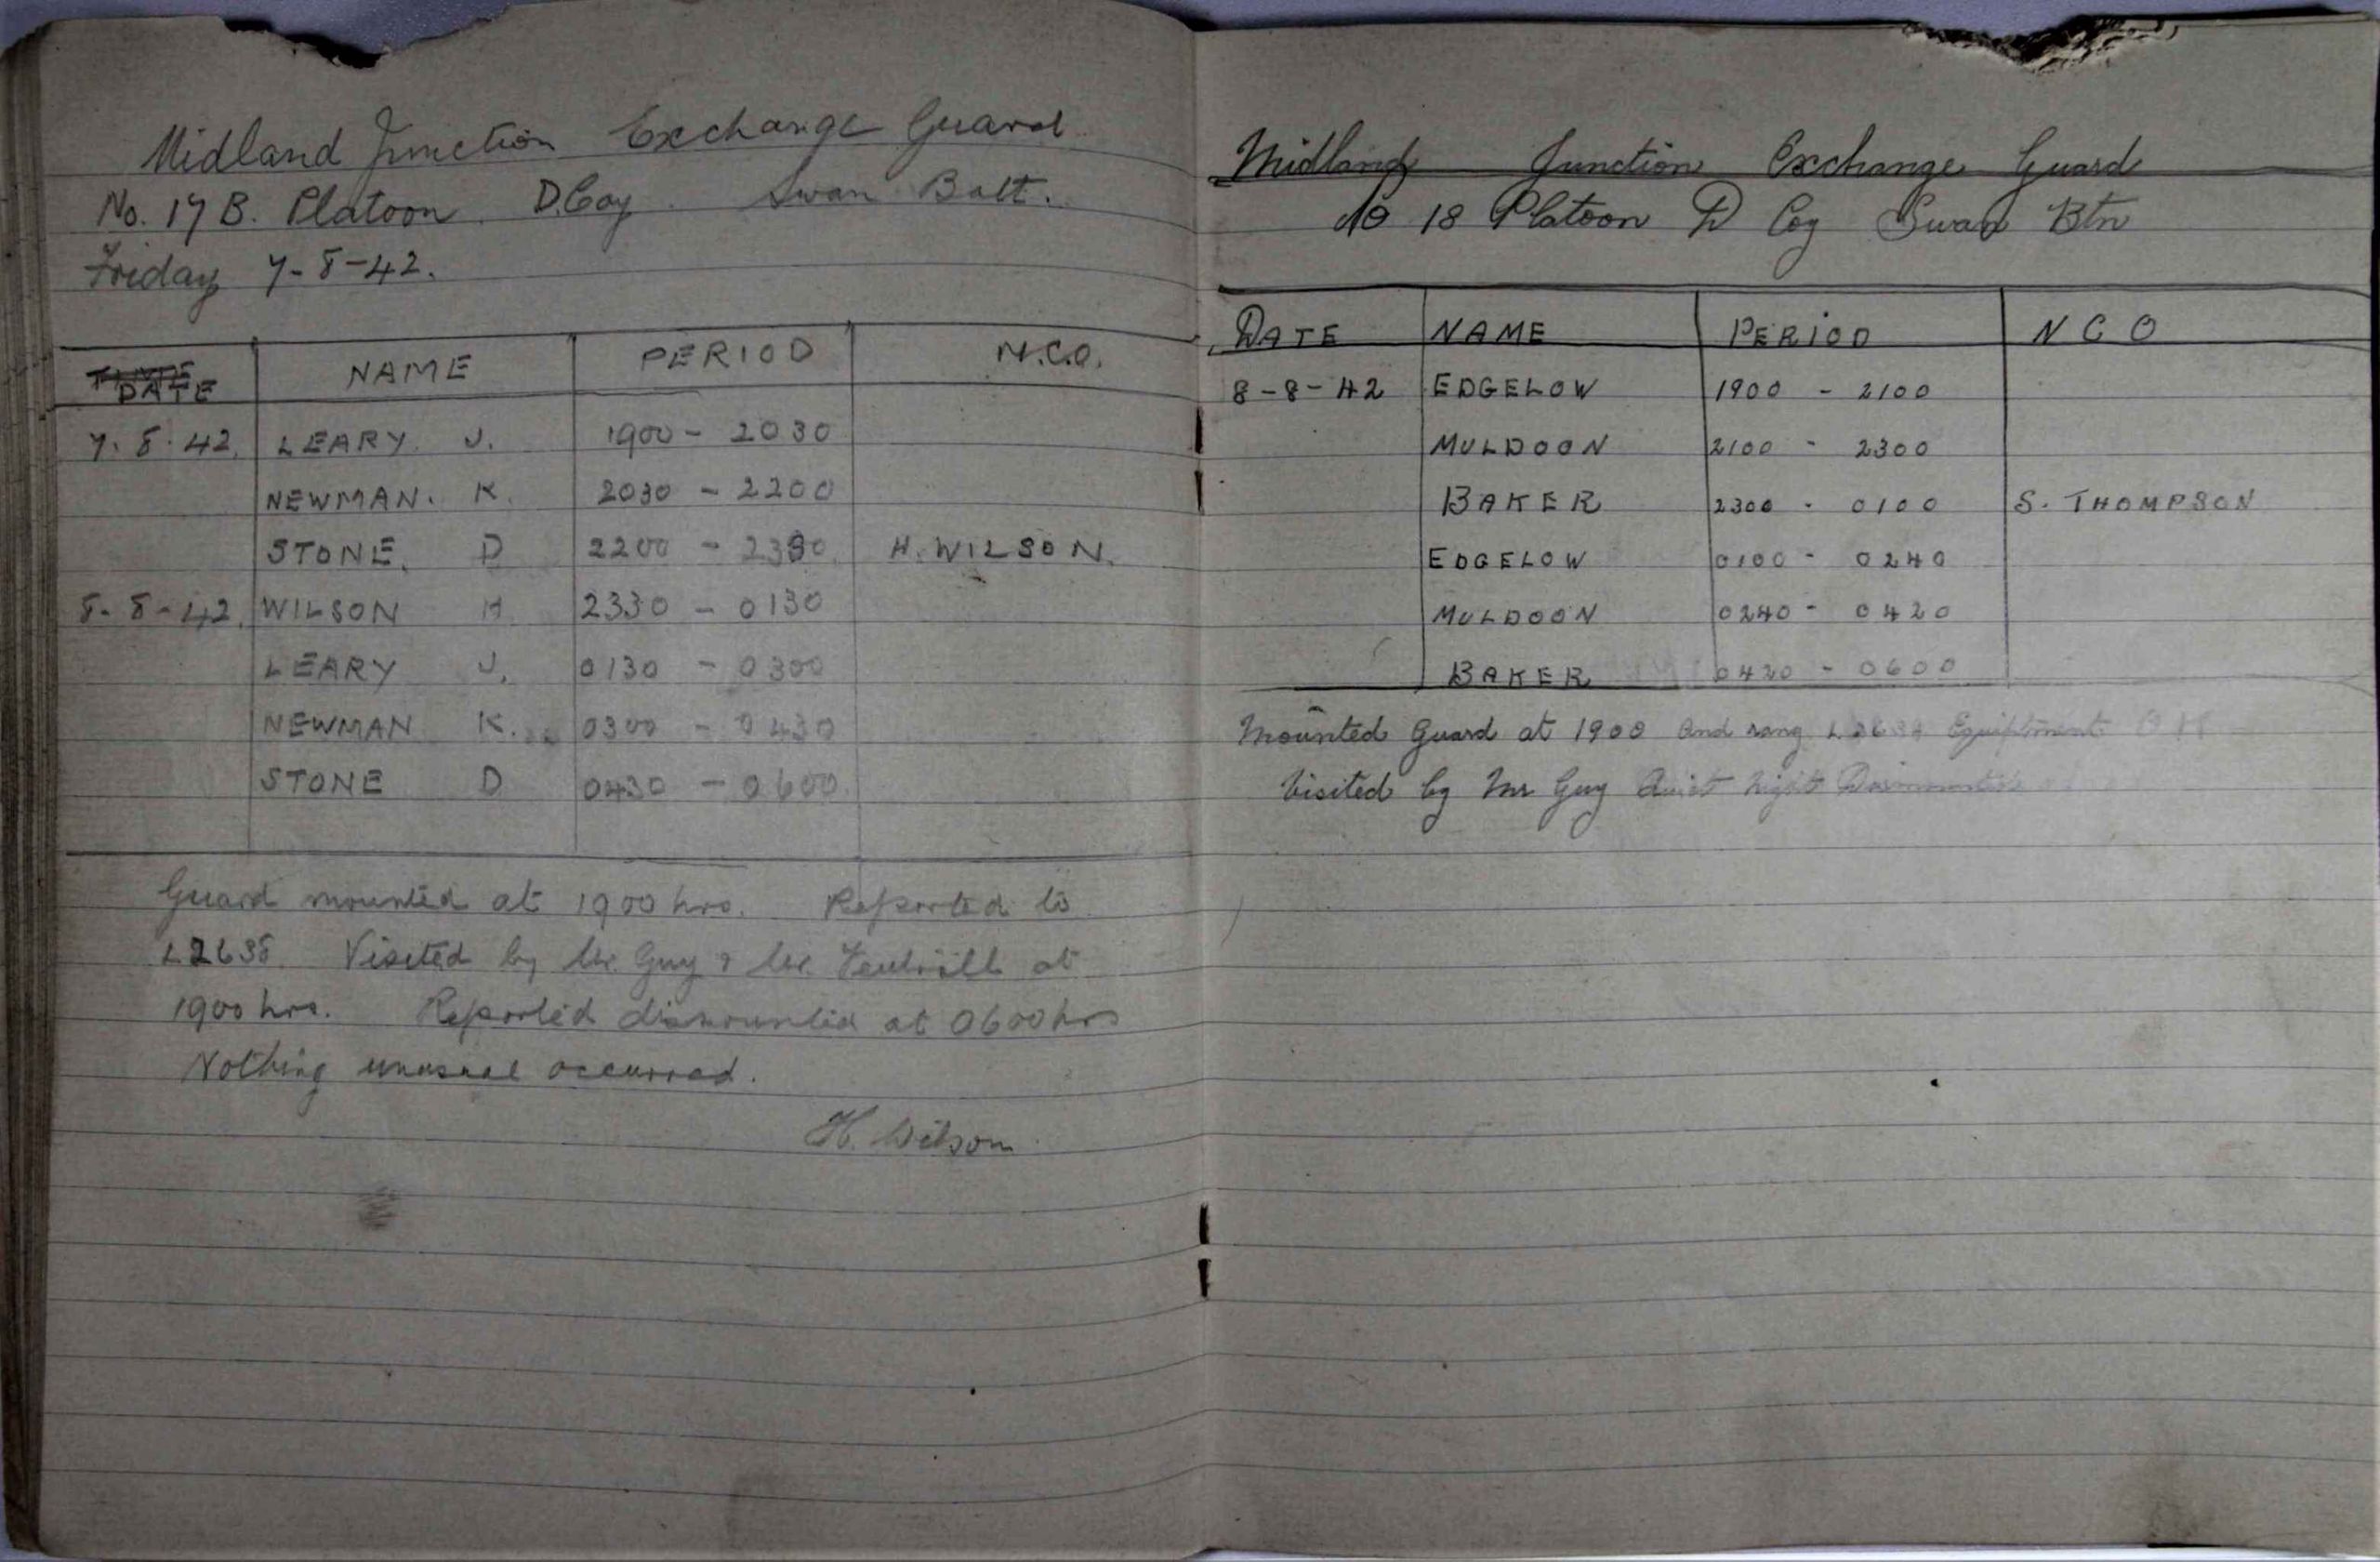 Midland Junction Exchange Guard
No. 17 B. Platoon. D.Coy. Swan Batt.
Friday 7-8-42.
DATE NAME PERIOD N.C.O.
7.8.42. LEARY. J. 1900 - 2030
NEWMAN. K. 2030 - 2200
STONE. D 2200 - 2330 H. WILSON.
8-8-42. WILSON H 2330 - 0130
LEARY J. 0130 - 0300
NEWMAN K. 0300 - 0430
STONE D 0430 - 0600
Guard mounted at 1900 hrs. Reported to
L2638. Visited by Mr. Guy & Mr. at
1900 hrs. Reported dismounted at 0600 hrs
Nothing unusual occurred.
H. Wilson
Midland Junction Exchange Guard
No 18 Platoon D Coy Swan Btn
DATE NAME PERIOD N C O
8-8-42 EDGELOW 1900 - 2100
MULDOON 2100 - 2300
BAKER 2300 - 0100 S. THOMPSON
EDGELOW 0100 - 0240
MULDOON 0240 - 0420
BAKER 0420 - 0600
Mounted Guard at 1900 and rang Equiptment
Visited by Mr Guy Quiet night